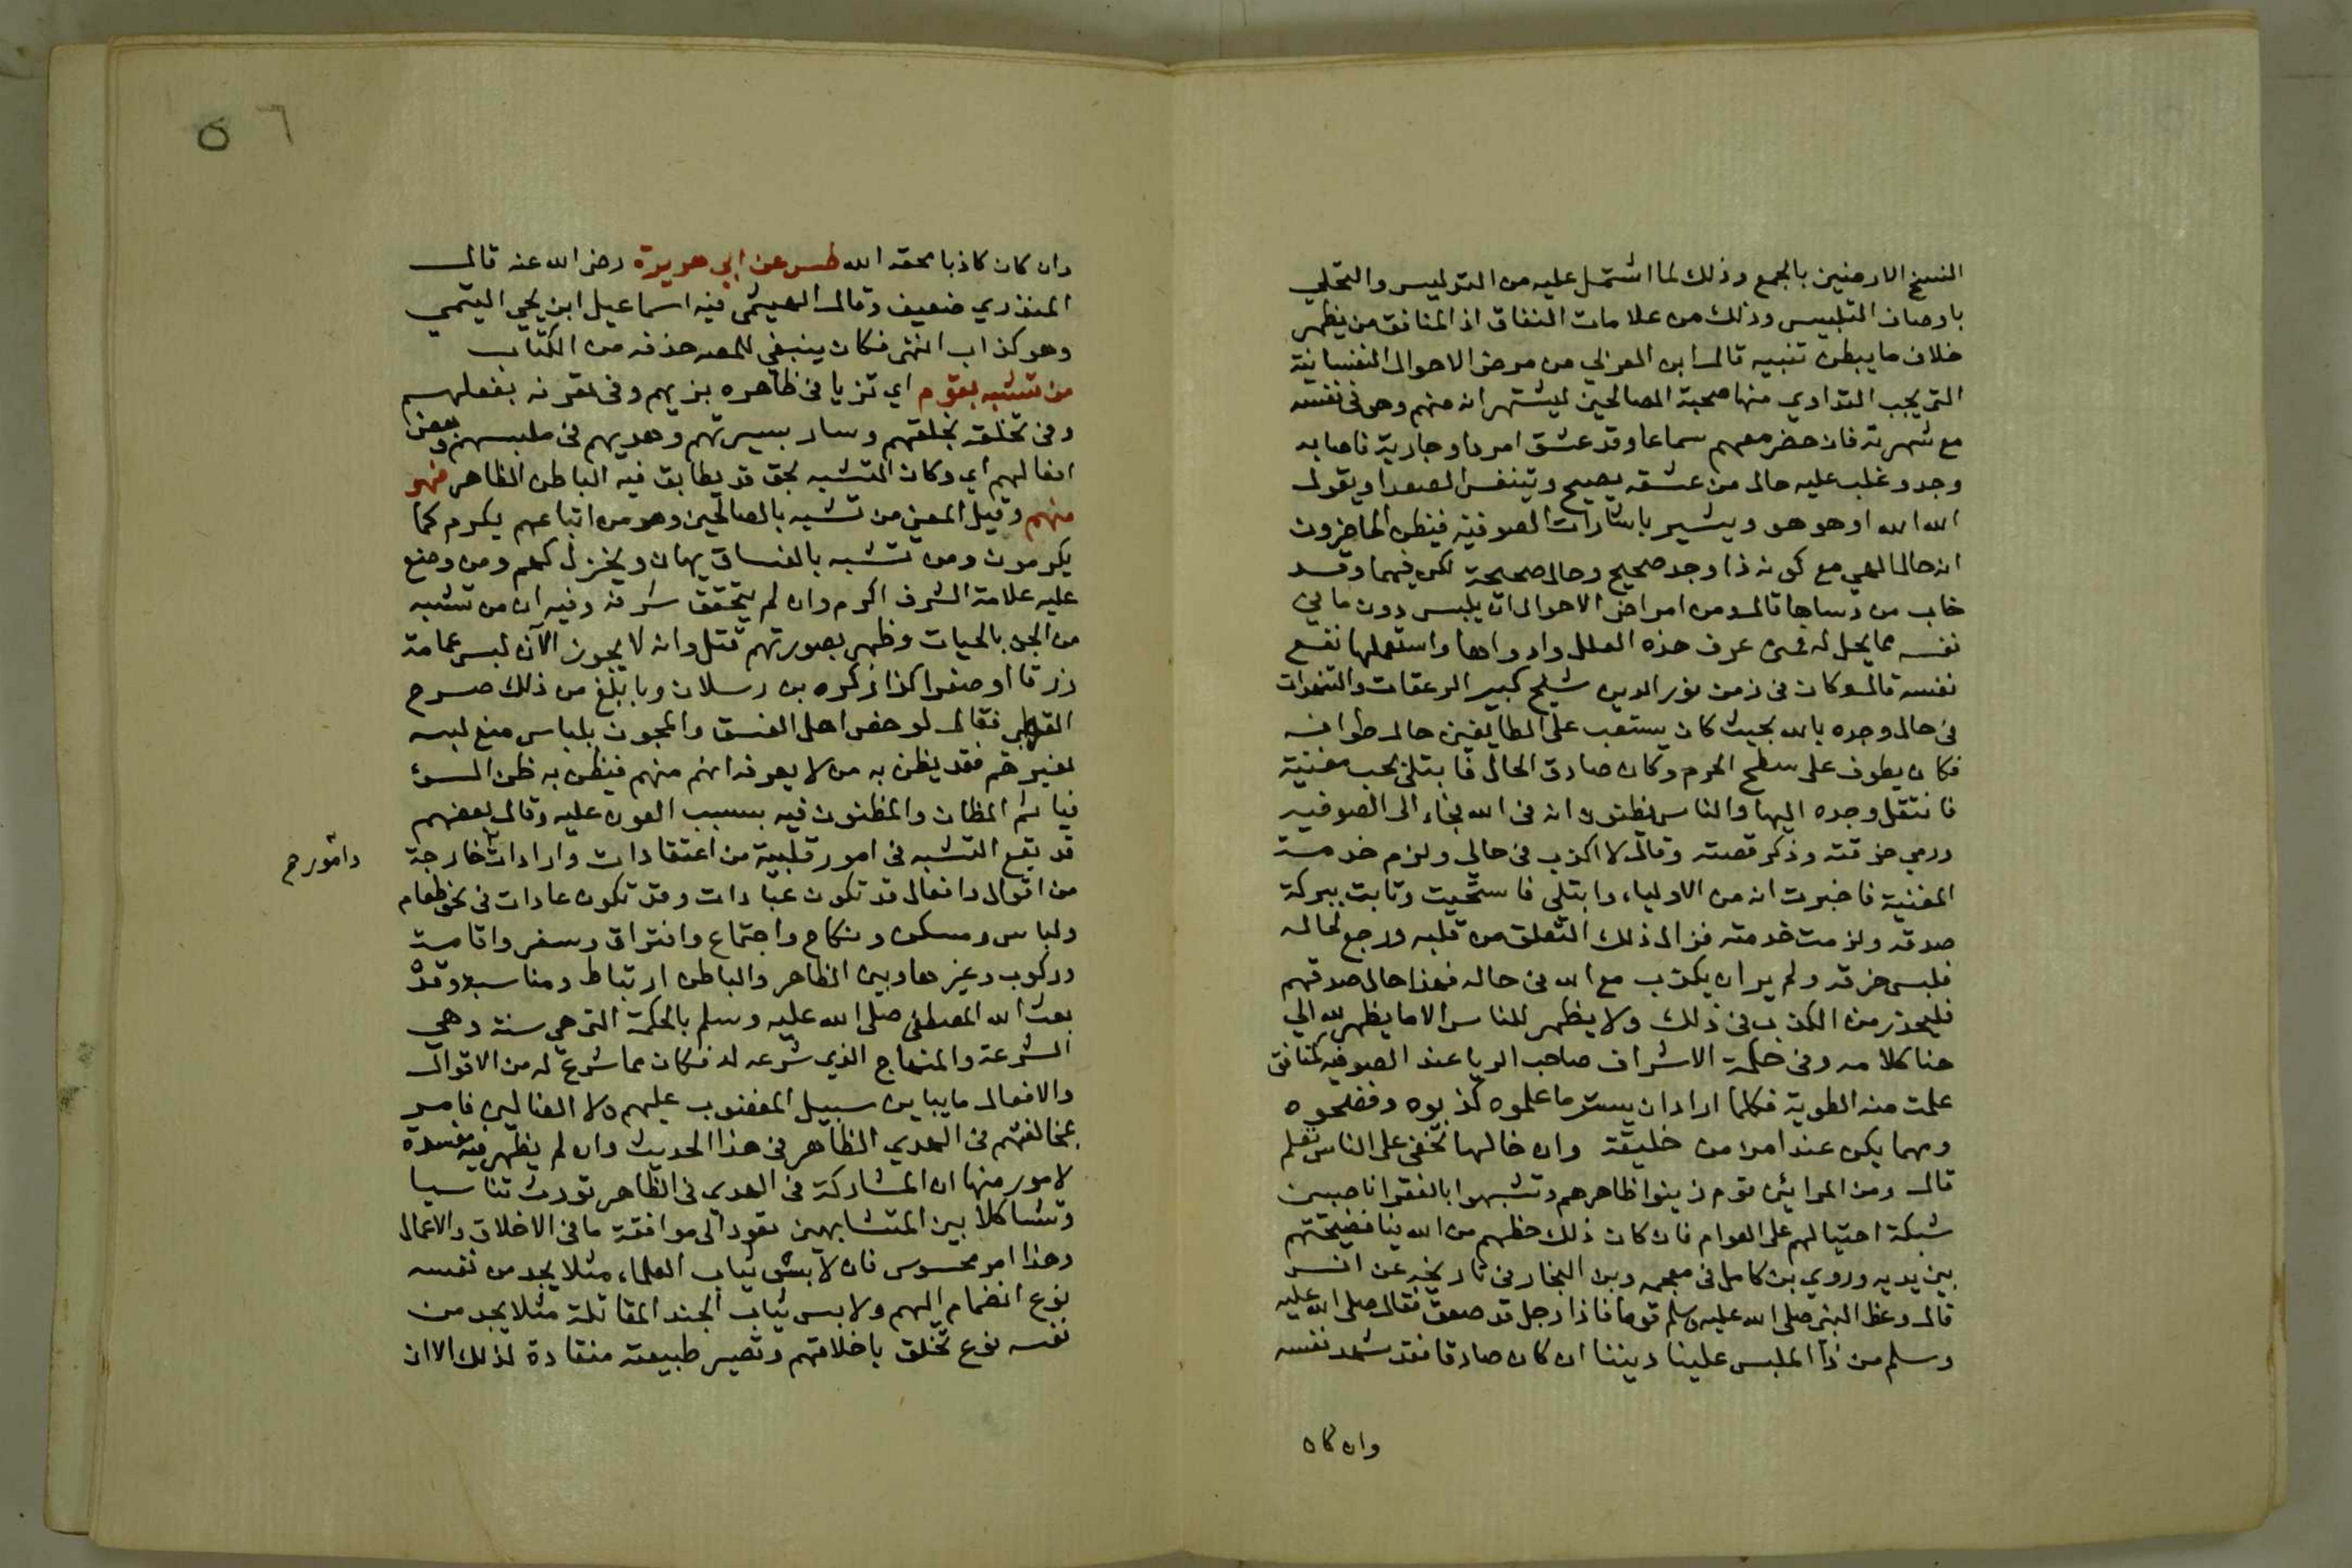 النسخ الارضين بالجمع وذلك لما اشتمل عليه من التدليس والتحلي
باوصاف التلبيس وذلك من علامات النفاق اذ المنافق من يظهر
خلاف ما يبطن تنبيه قال ابن العربي من مرض الاحوال النفسانية
التي يجب التداوي منها صحبة الصالحين ليشتهر انه منهم وهو في نفسه
مع شهوته فان حضر معهم سماعا وقد عشق امردا وجارية فاصابه
وجد وغلب عليه حال من عشقه يصيح ويتنفس الصعدا ويقول
الله الله او هو هو ويشير باشارات الصوفية فيظن الحاضرون
انه حال الهي مع كونه ذا وجد صحيح وحال صحيحة لكن فيما وقد
خاب من دساها قال ومن امراض الاحوال ان يلبس دون ما في
نفسه مما يحل له فمن عرف هذه العلل وادواها واستعملها نفع
نفسه قال وكان في زمن نور الدين شيخ كبير الزعقات والتنهدات
في حال وجده بالله بحيث كان يتعب على الطايفين حال طوافه
فكان يطوف على سطح الحرم وكان صادق الحال فابتلي بحب مغنية
فانتقل وجده اليها والناس يظنون انه في الله فجاء الى الصوفيه
ورمي خرقته وذكر قصته وقال لا اكذب في حالي ولزم خدمت
المغنية فاخبرت انه من الاولياء وابتلي فاستحيت وتابت ببركة
صدقه ولزمت خدمته فزال ذلك التعلق من قلبه ورجع لحاله
فلبس خرقته ولم ير ان يكذب مع الله في حاله فهذا حال صدقهم
فليحذر من الكذب في ذلك ولا يظهر للناس الا ما يظهر لله الي
هنا كلامه وفي حكمة الاشراف صاحب الريا عند الصوفيه منافق
علمت منه الطوية فكلما اراد ان يستر ما علموه كذبوه وفضحوه
ومهما يكن عند امرء من خليقة وان خالها تخفى على الناس تعلم
قال ومن المرائين قوم زينوا ظاهرهم وتشبهوا بالفقرا ناصبين
شبكة احتيالهم على العوام فان كان ذلك حظهم من الله ينا فضيحتهم
بين يديه وروي بن كامل في معجمه وبن النجار في تاريخه عن انس
قال وعظ النبي صلى الله عليه وسلم قوما فاذا رجل قد صعق فقال صلى الله عليه
وسلم من ذا الملبس علينا ديننا ان كان صادقا فقد شهد نفسه
وان كان
٥٦
وان كان كاذبا محقه الله طس عن ابي هريرة رضي الله عنه قال
المنذري ضعيف وقال الهيثمي فيه اسماعيل ابن يحيي التيمي
وهو كذاب انتهى فكان ينبغي للمصـ حذفه من الكتاب
من تشبه بقوم اي تزيا في ظاهره بزيهم وفي تعرفه بفعلهم
وفي تخلقه بخلقهم وسار بسيرتهم وهديهم في ملبسهم وبعض
افعالهم اي وكان التشبه بحق قد يطابق فيه الباطن الظاهر فهو
منهم وقيل المعنى من تشبه بالصالحين وهو من اتباعهم يكرم كما
يكرمون ومن تشبه بالفساق يهان ويخزل كهم ومن وضع
عليه علامة الشرف اكرم وان لم يتحقق شرفه وفيه ان من تشبه
من الجن بالحيات وظهر بصورتهم قتل وانه لا يجوز الآن لبس عمامة
زرقا او صفرا كذا ذكره بن رسلان وبابلغ من ذلك صرح
القرطبي فقال لو خص اهل الفسق والمجون بلباس منع لبسه
لغيرهم فقد يظن به من لا يعرفه انه منهم فيظن به ظن السوء
فيأثم الظان والمظنون فيه بسبب العون عليه وقال بعضهم
قد يقع التشبه في امور قلبية من اعتقادات وارادات خارجة
وامور صح
من اقوال وافعال قد تكون عبادات وقد تكون عادات في نحو طعام
ولباس ومسكن ونكاح واجتماع وافتراق وسفر واقامت
وركوب وغيرها وبين الظاهر والباطن ارتباط ومناسبة وقد
بعث الله المصطفى صلى الله عليه وسلم بالحكمة التي هي سنة وهي
الشرعة والمنهاج الذي شرعه له فكان مما شرع له من الاقوال
والافعال ما يباين سبيل المغضوب عليهم ولا الضالين فامر
بمخالفتهم في الهدي الظاهر في هذا الحديث وان لم يظهر فيه مفسدة
لامور منها ان المشاركة في الهدي في الظاهر تورث تناسبا
وتشاكلا بين المتشابهين تعود الى موافقة ما في الاخلاق والاعمال
وهذا امر محسوس فان لابس ثياب العلماء مثلا يجد من نفسه
نوع انضمام اليهم ولابس ثياب الجند المقاتلة مثلا يجد من
نفسه نوع تخلق باخلاقهم وتصير طبيعته منقادة لذلك الا ان